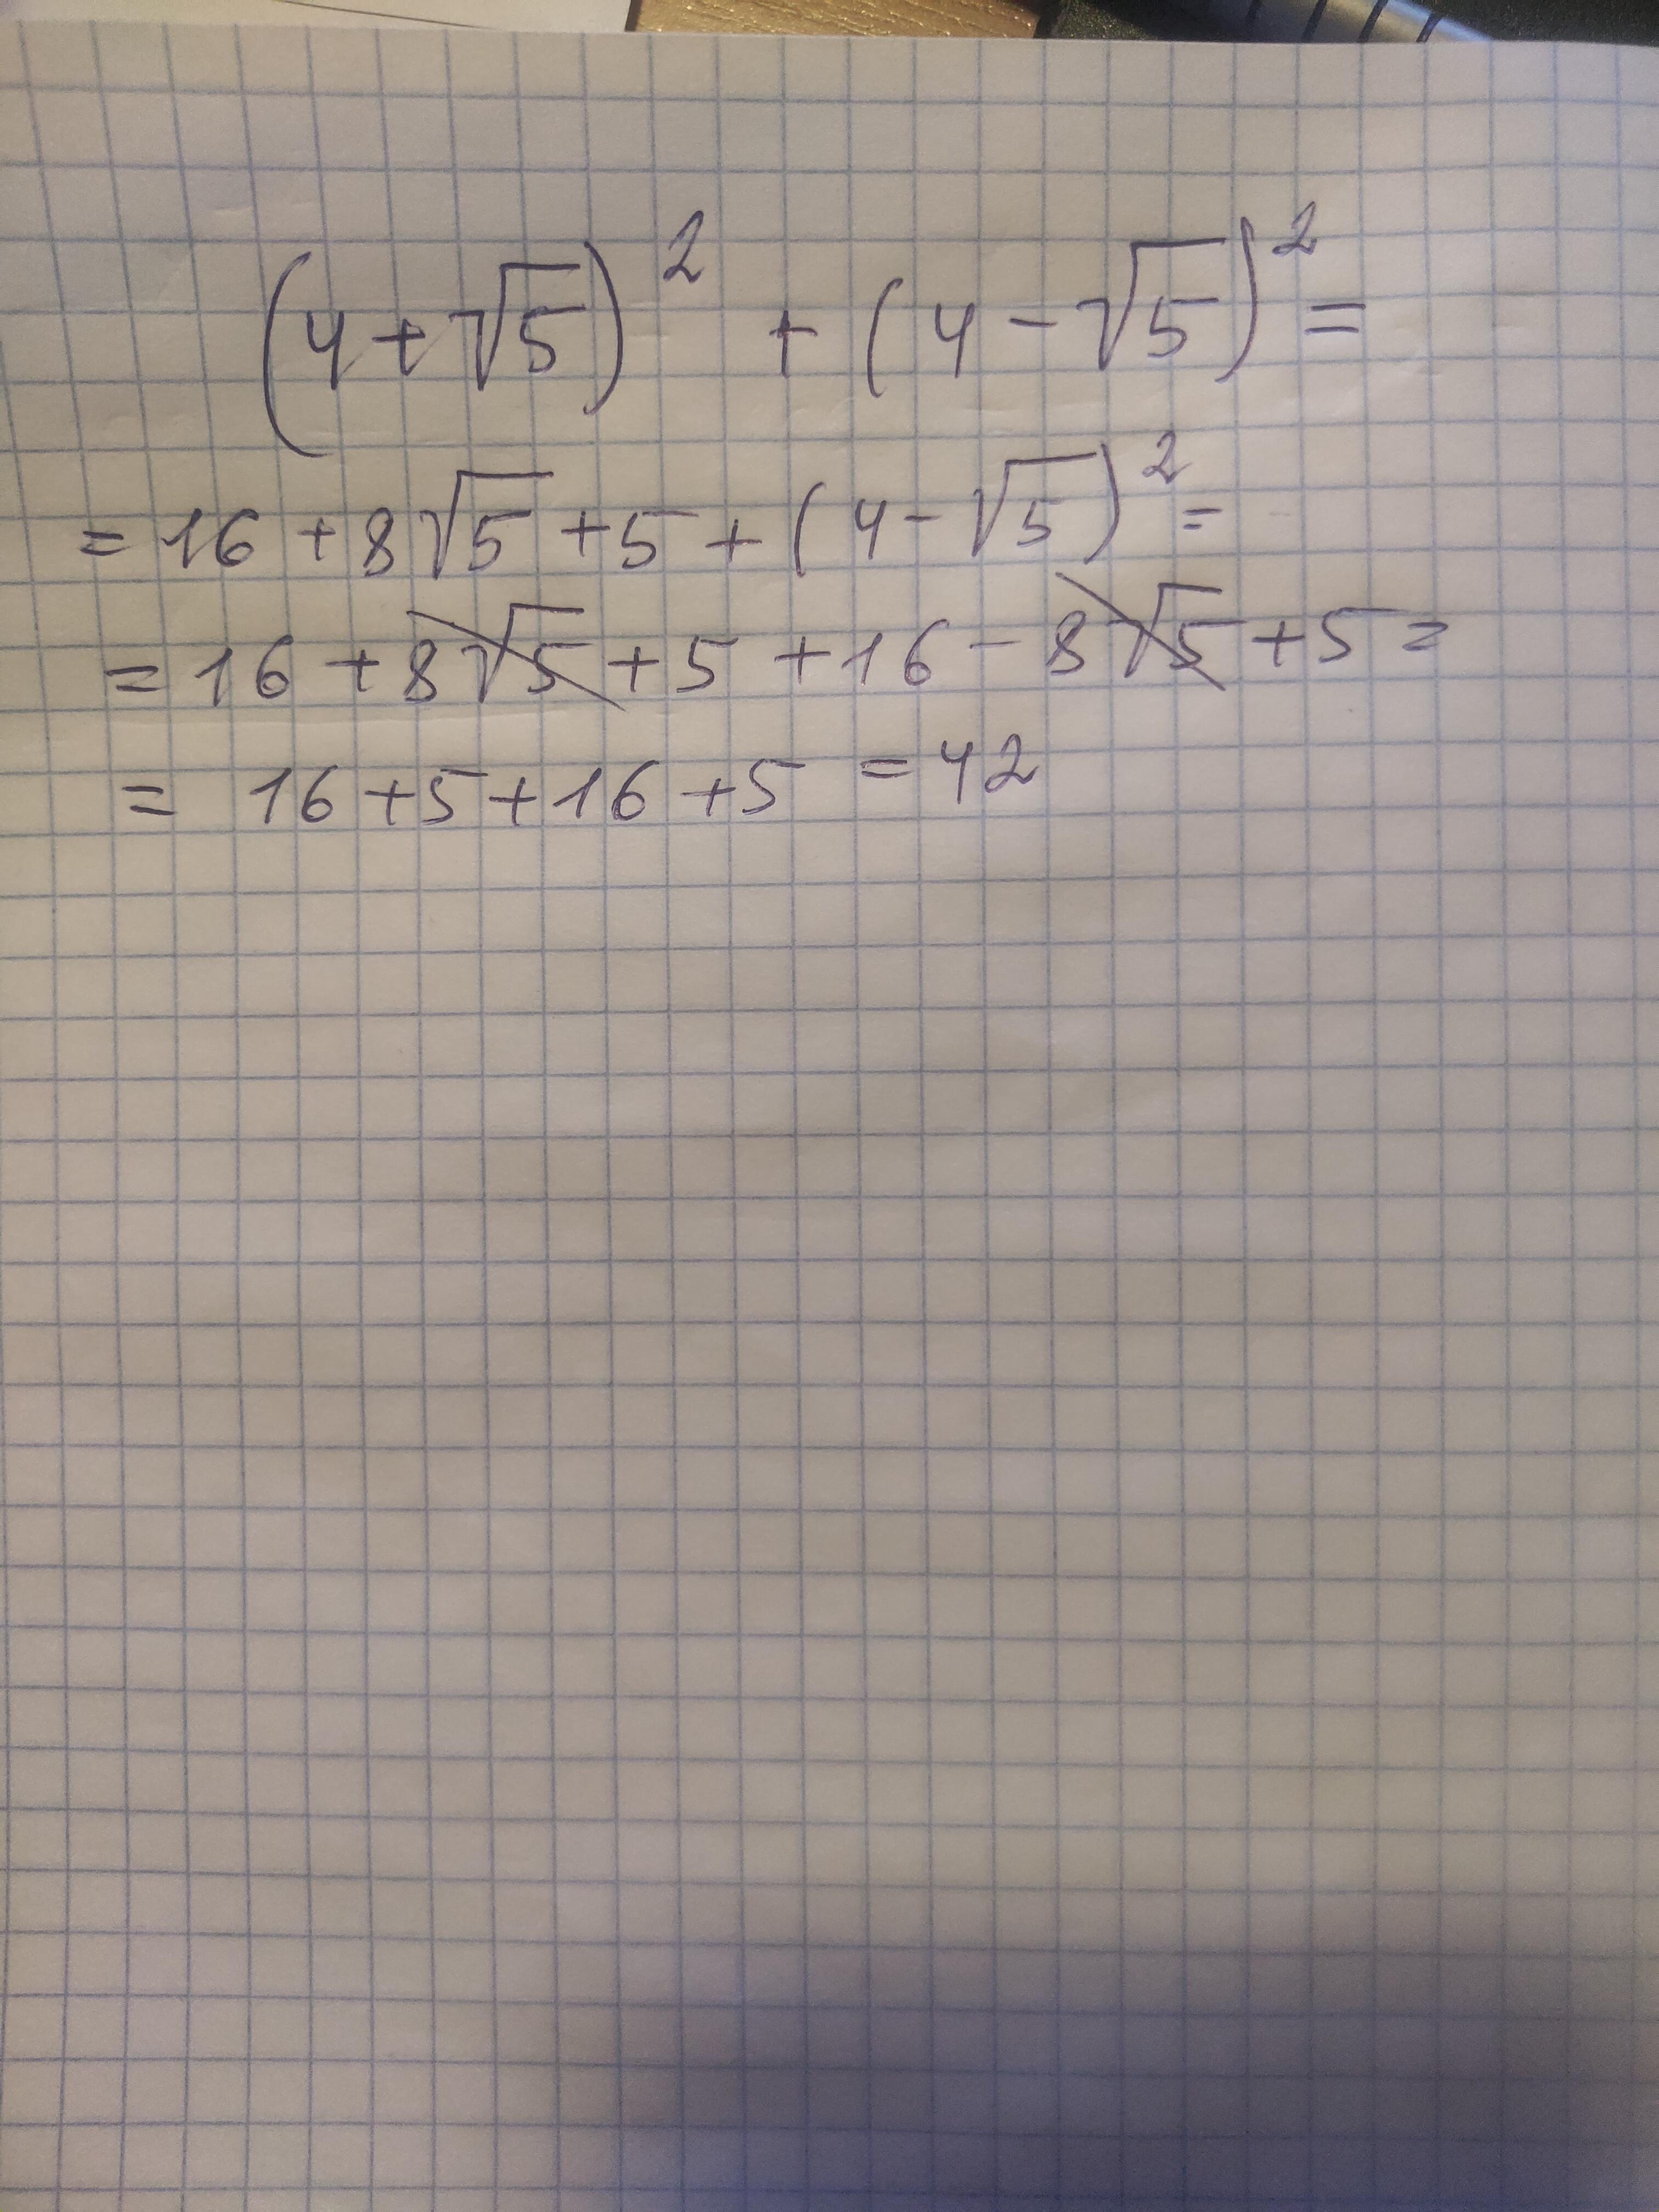 (4+√5)² + (4-√5)² =
= 16 + 8√5 + 5 + (4-√5)² =
= 16 + 8√5 + 5 + 16 - 8√5 + 5 =
= 16 + 5 + 16 + 5 = 42